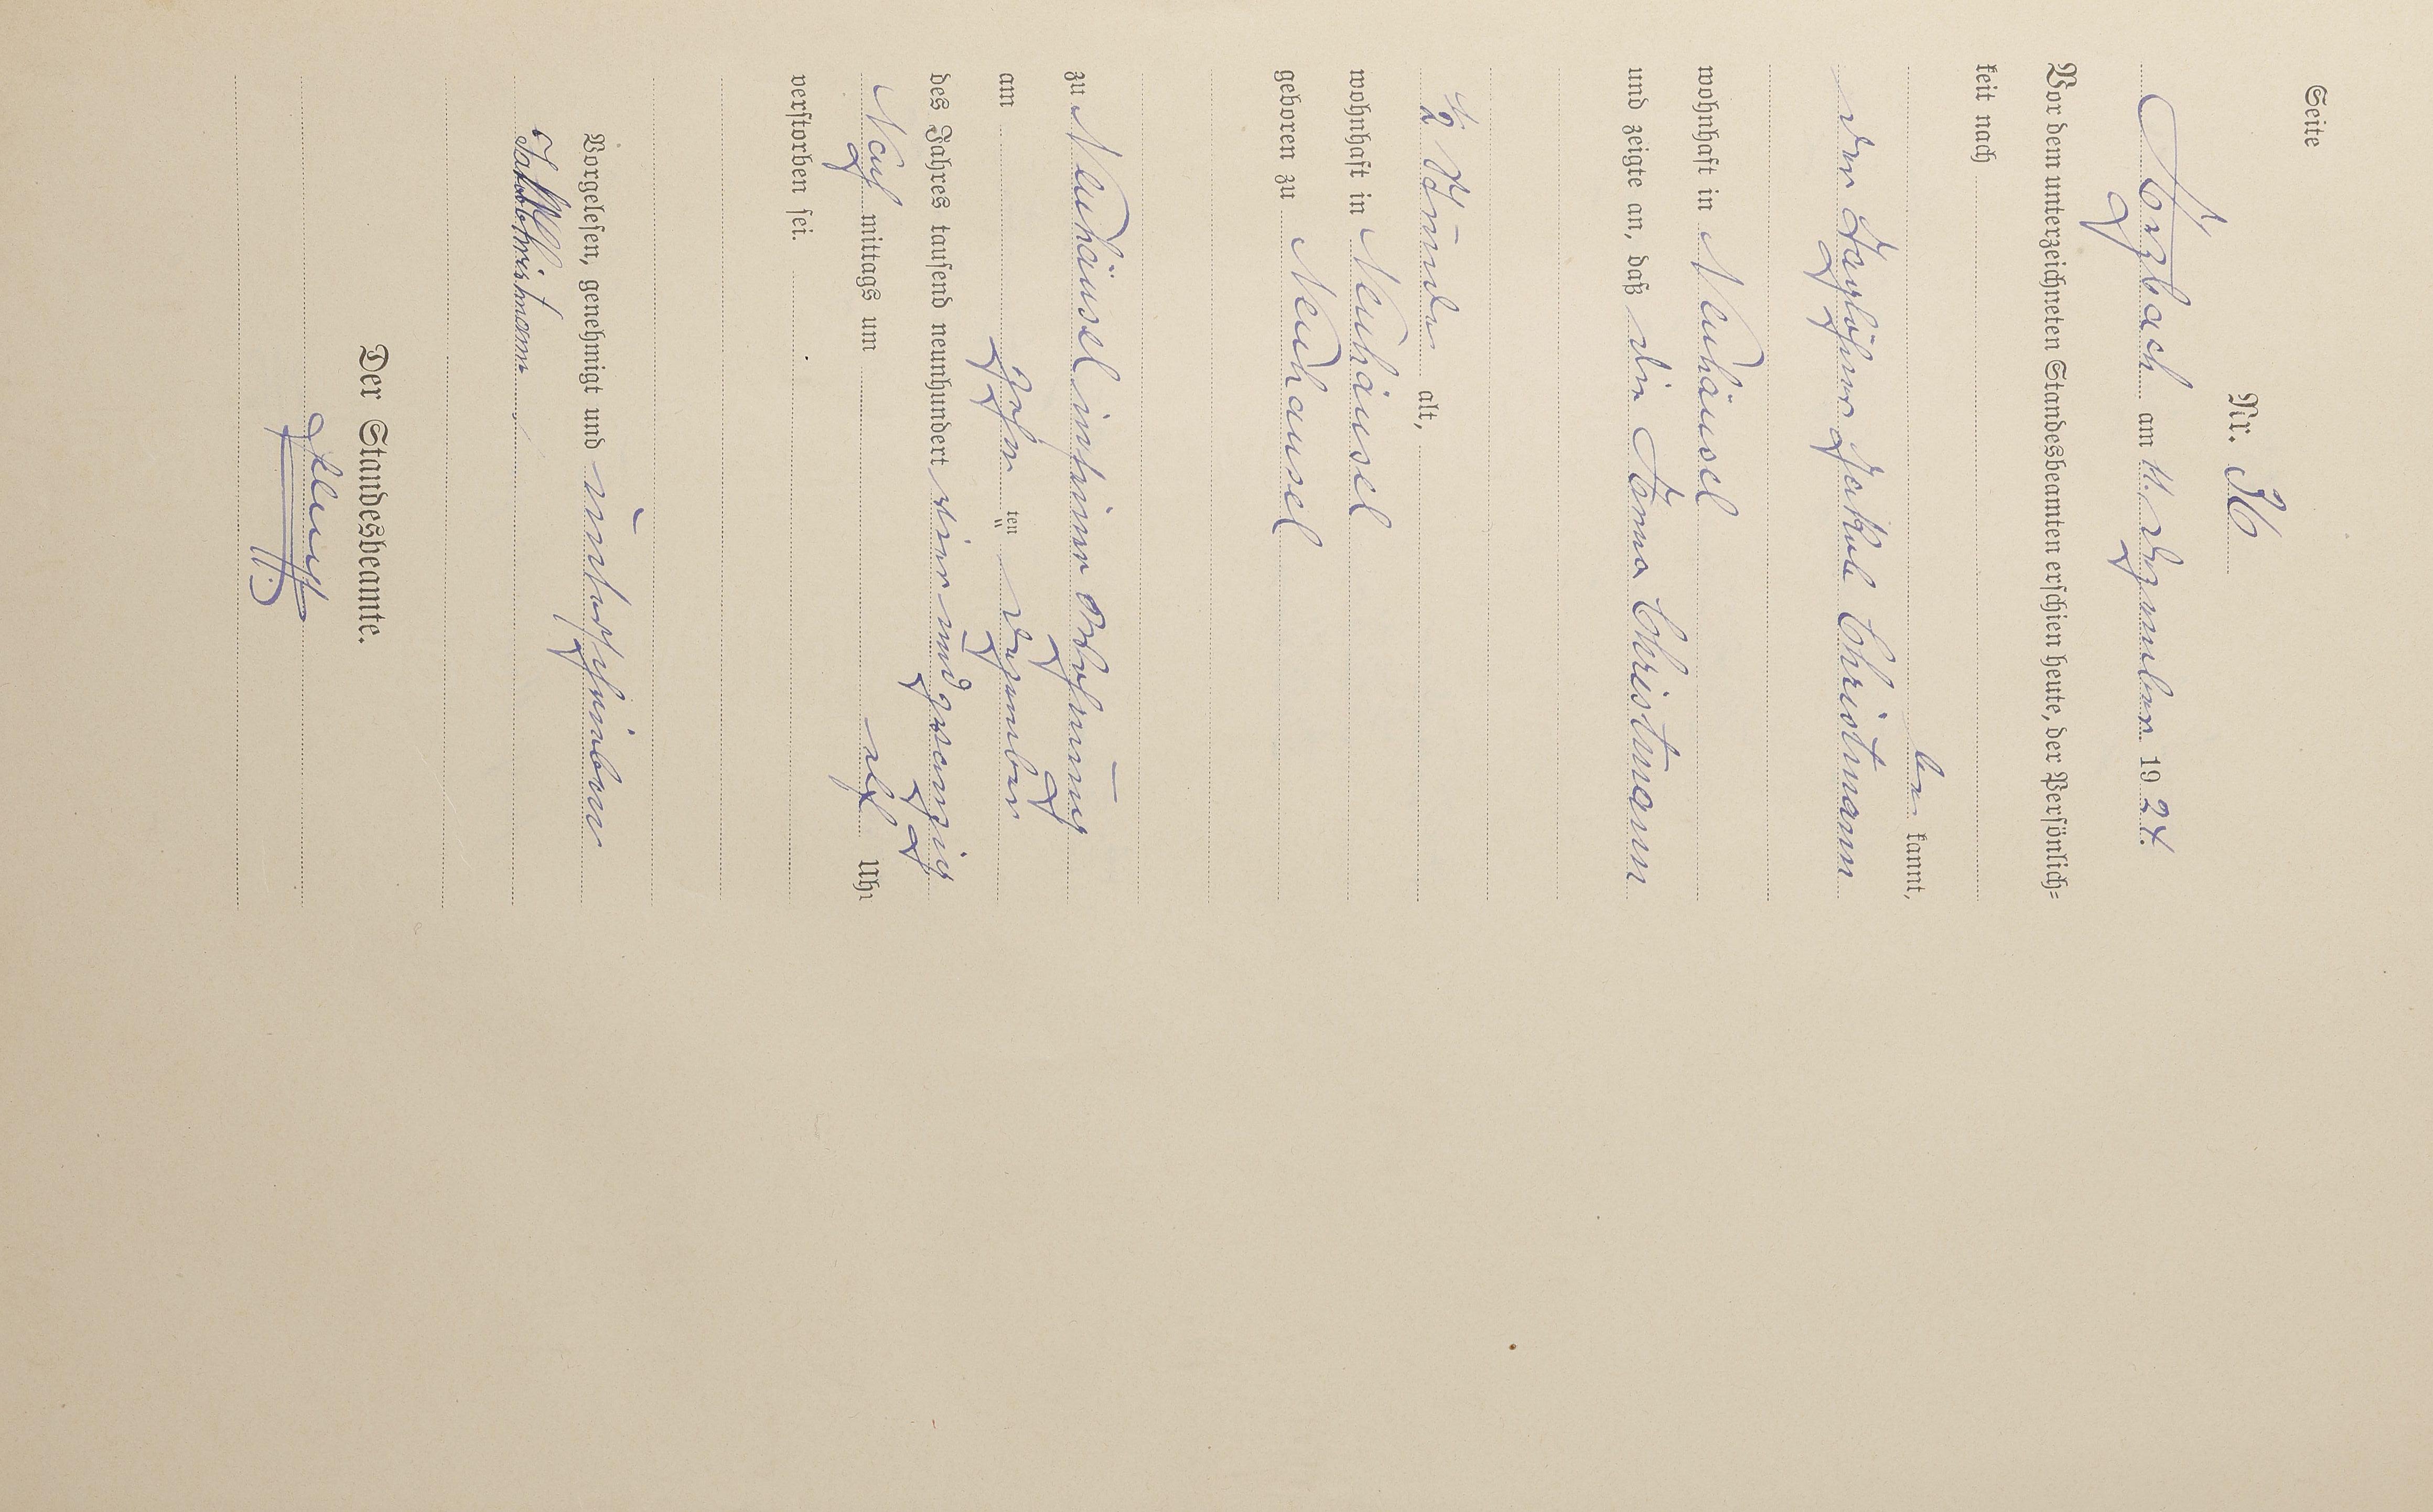 Seite
Nr. 36
Arzbach am 11. Dezember 1924.
Vor dem unterzeichneten Standesbeamten erschien heute, der Persönlich-
keit nach
be kannt,
der Taglöhner Jakob Christmann
wohnhaft in Neuhäusel
und zeigte an, daß die Anna Christmann
1/2 Stunde alt,
wohnhaft in Neuhäusel
geboren zu Neuhäusel
zu Neuhäusel in seiner Wohnung
am zehn ten Dezember
des Jahres tausend neunhundert vier und zwanzig
Nach mittags um elf Uhr
verstorben sei.
Vorgelesen, genehmigt und unterschrieben
Jakob Christmann
Der Standesbeamte.